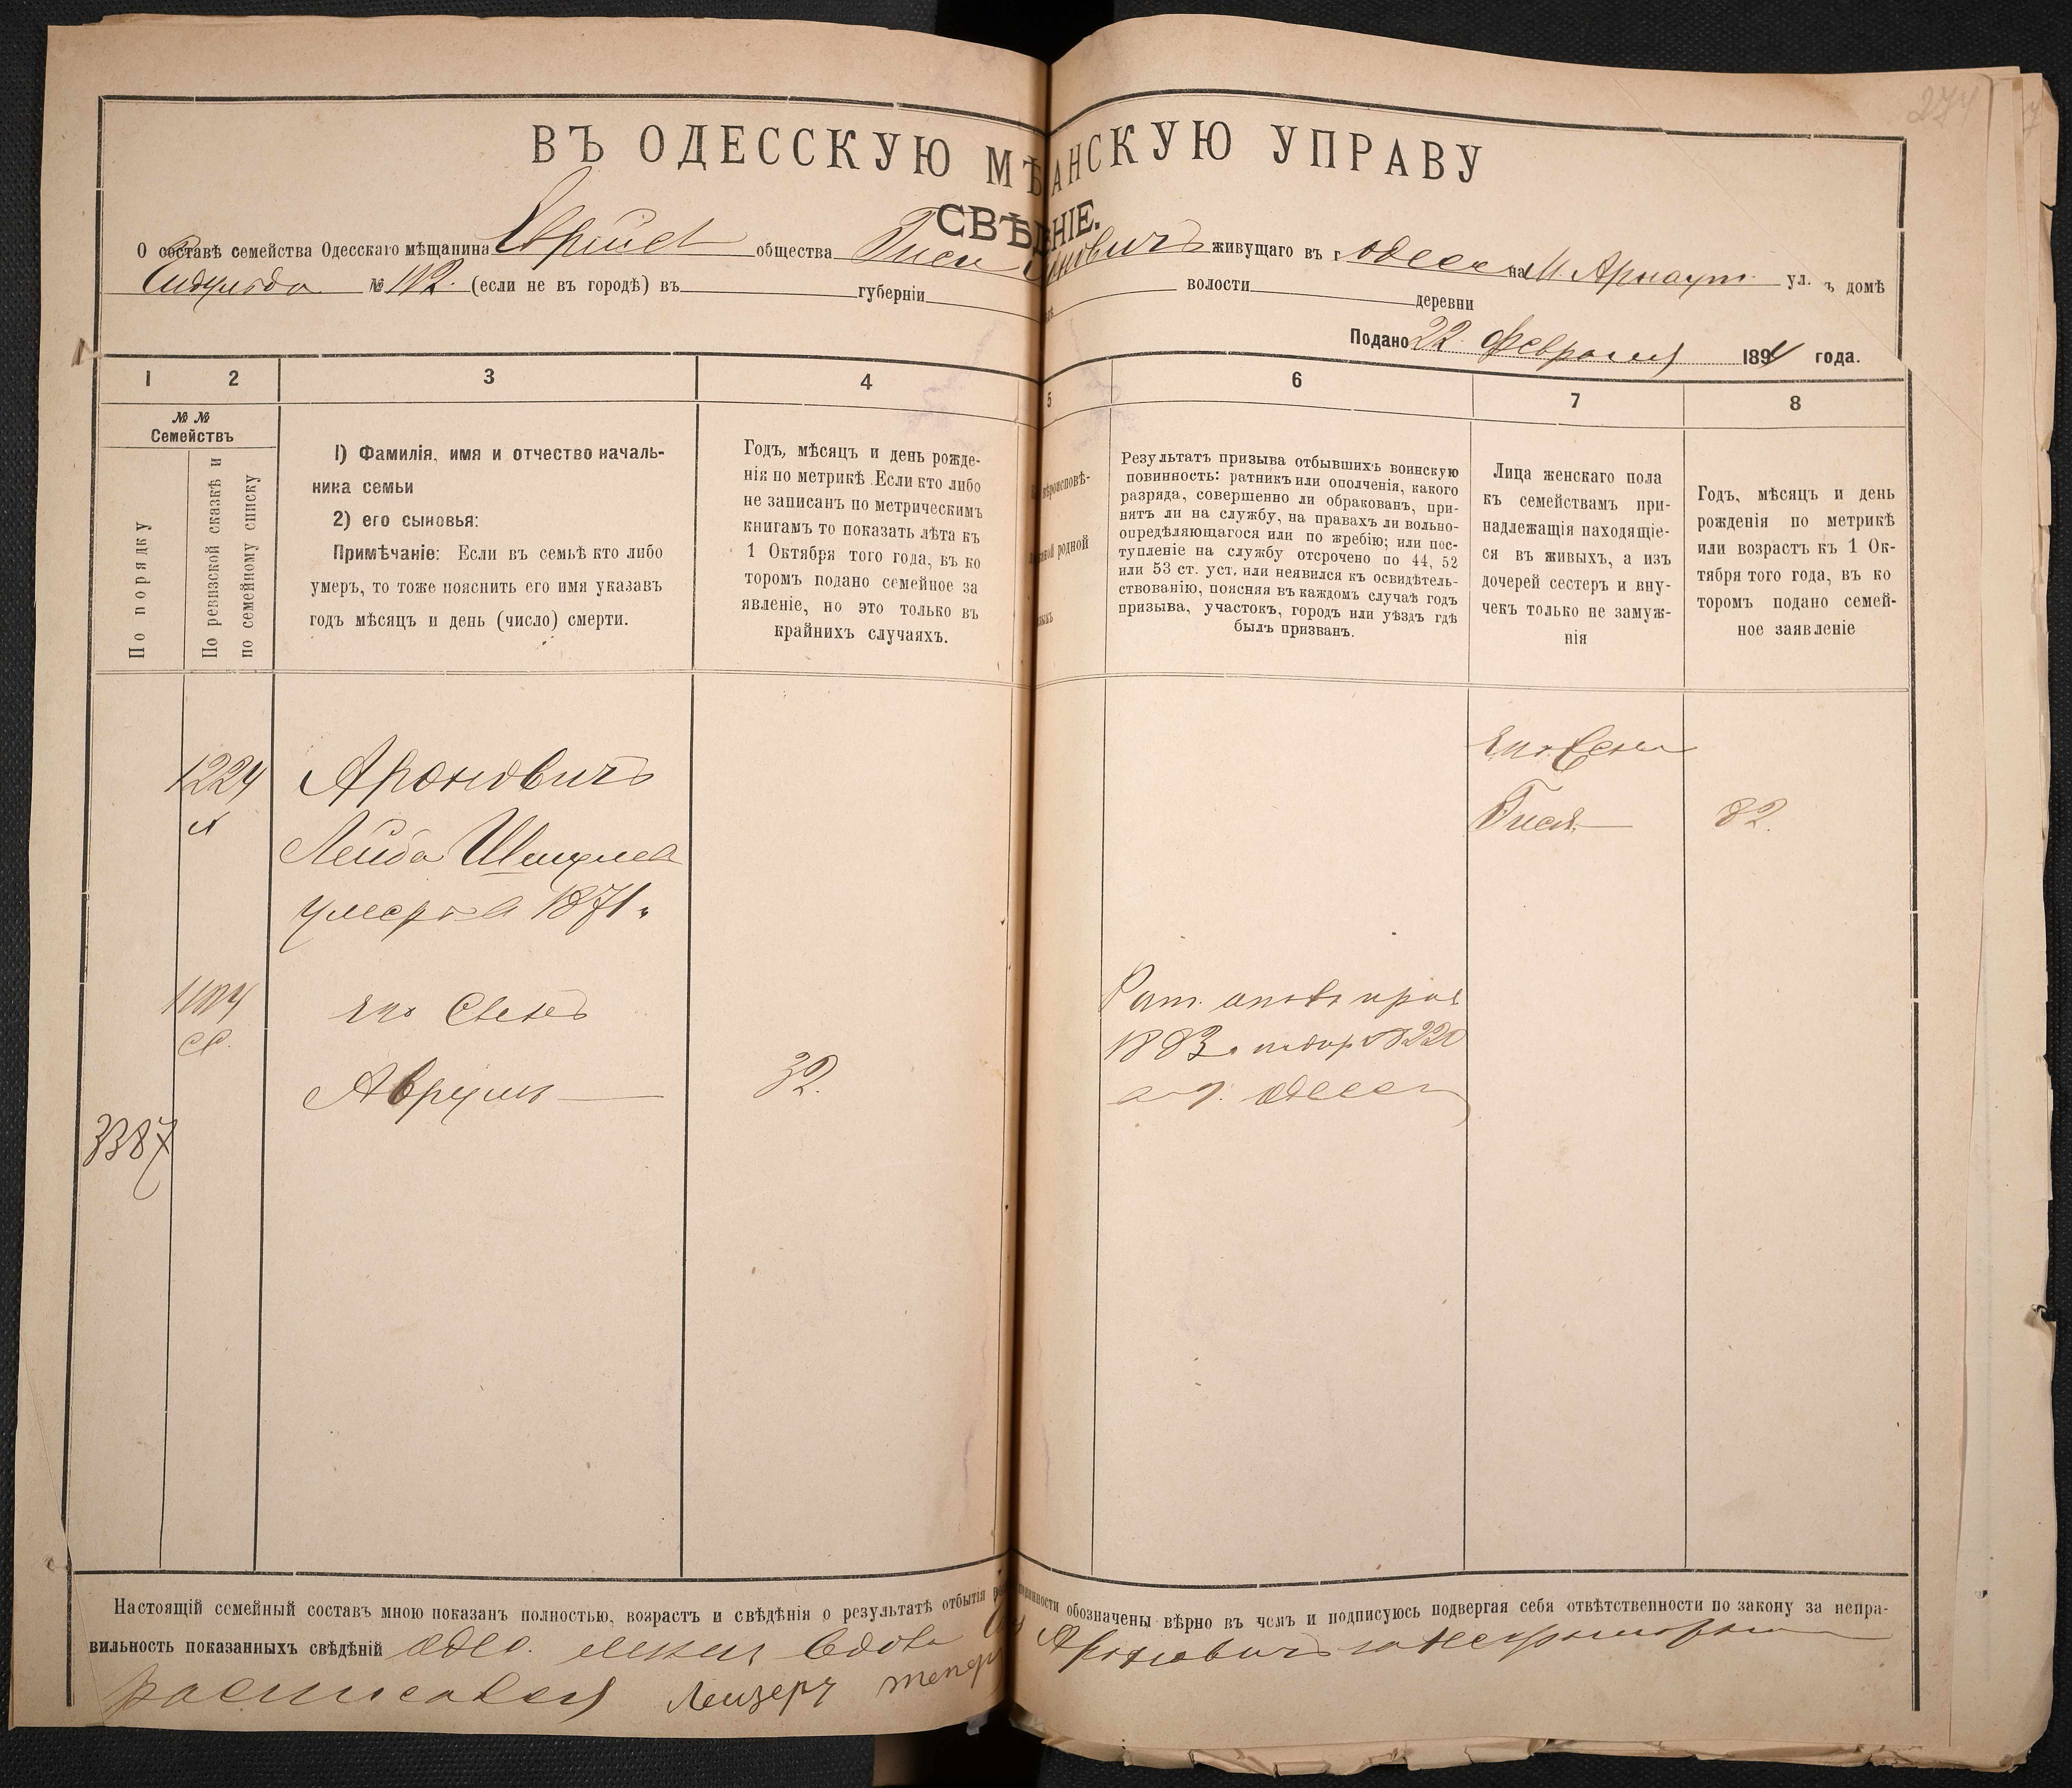 274
ВЪ ОДЕССКУЮ МѢ АНСКУЮ УПРАВУ
СВѢД НІЕ.
О составѣ семейства Одесскаго мѣщанина Еврейск общества Гиси новичъ живущаго въ г. Одессе на М. Арнаут ул. ъ домѣ
№ 112. (если не въ городѣ) въ губерніи волости деревни
Подано 22 Февраля 1894 года.
1 2 3 4 5 6 7 8
№ №
Семействъ
По порядку
По ревизской сказкѣ и
по семейному списку
1) Фамилія, имя и отчество началь-
ника семьи
2) его сыновья:
Примѣчаніе: Если въ семьѣ кто либо
умеръ, то тоже пояснить его имя указавъ
годъ мѣсяцъ и день (число) смерти.
Годъ, мѣсяцъ и день рожде-
нія по метрикѣ. Если кто либо
не записанъ по метрическимъ
книгамъ то показать лѣта къ
1 Октября того года, въ ко
торомъ подано семейное за
явленіе, но это только въ
крайнихъ случаяхъ.
вѣроисповѣ-
родной
Результатъ призыва отбывшихъ воинскую
повинность: ратникъ или ополченія, какого
разряда, совершенно ли обракованъ, при-
нятъ ли на службу, на правахъ ли вольно-
опредѣляющагося или по жребію; или пос-
тупленіе на службу отсрочено по 44, 52
или 53 ст. уст. или неявился къ освидѣтель-
ствованію, поясняя въ каждомъ случаѣ годъ
призыва, участокъ, городъ или уѣздъ гдѣ
былъ призванъ.
Лица женскаго пола
къ семействамъ при-
надлежащія находящіе-
ся въ живыхъ, а изъ
дочерей сестеръ и вну-
чекъ только не замуж-
нія
Годъ, мѣсяцъ и день
рожденія по метрикѣ
или возрастъ къ 1 Ок-
тября того года, въ ко
торомъ подано семей-
ное заявленіе
его Жена
1224 Ароновичъ
Гися 82.
Лейба Шмулев
умеръ в 1871 г.
его Сынъ
Рат. опол. приз
1883 г.
Аврумъ 32.
Одесса
3387
Настоящій семейный составъ мною показанъ полностью, возрастъ и свѣдѣнія о результатѣ отбытія повинности обозначены вѣрно въ чемъ и подписуюсь подвергая себя отвѣтственности по закону за непра-
вильность показанныхъ свѣдѣній Вдова Ароновичъ
росписался Лейзеръ